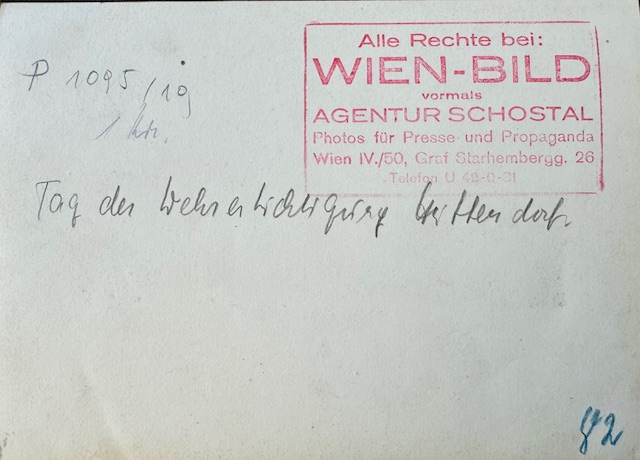 P 1095/19
Alle Rechte bei:
WIEN-BILD
vormals
AGENTUR SCHOSTAL
Photos für Presse und Propaganda
Wien IV./50, Graf Starhembergg. 26
Telefon U 42-0-31
Tag der Wehrertüchtigung
82